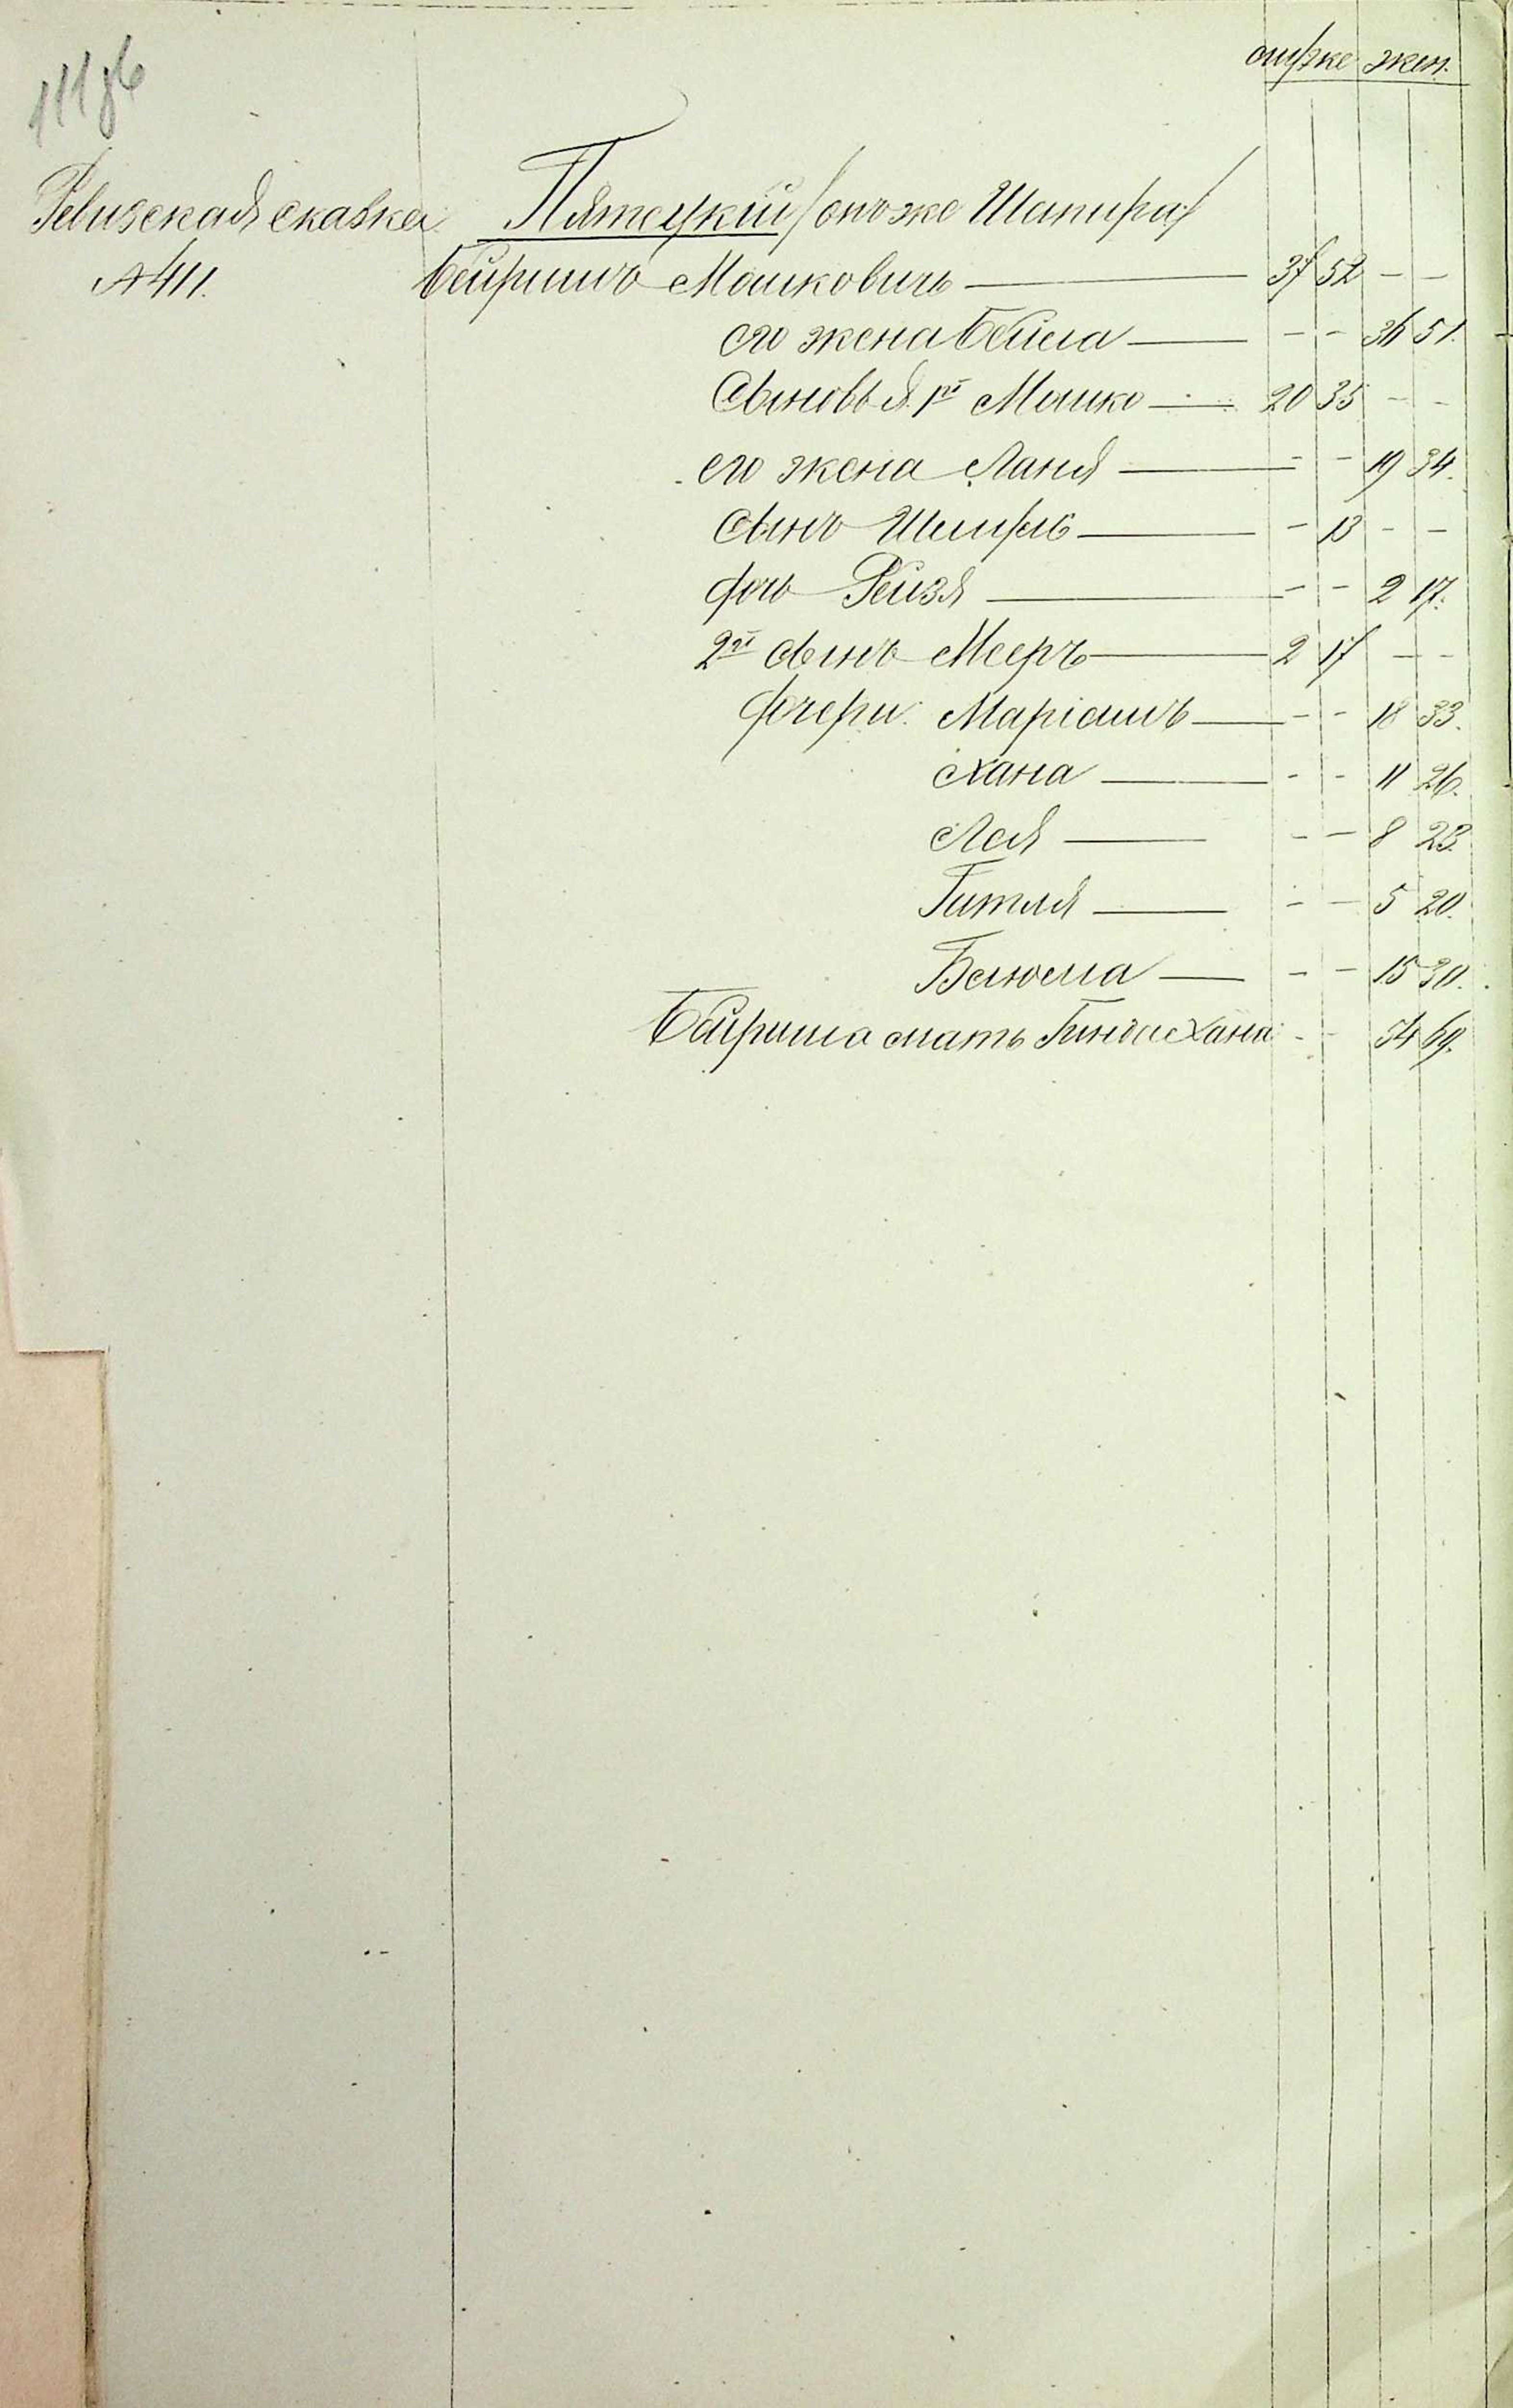 муж. жен.
Ревизская сказка Пятецкий /онъ же Шапира/
№ 411. Беиришъ Мошковичъ — 37 52 - -
его жена Бейла — - - 36 51.
Сыновья 1й Мошко — 20 35 - -
его жена Ланя — - - 19 34.
сынъ — - 13 - -
дочь Рейзя — - - 2 17.
2й сынъ Мееръ — 2 17 - -
дочери: Маріашъ — - - 18 33.
Хана — - - 11 26.
Лея — - - 8 23.
Гитля — - - 5 20.
— - - 15 30.
Беириша мать Гинда Хана - - 54 69.